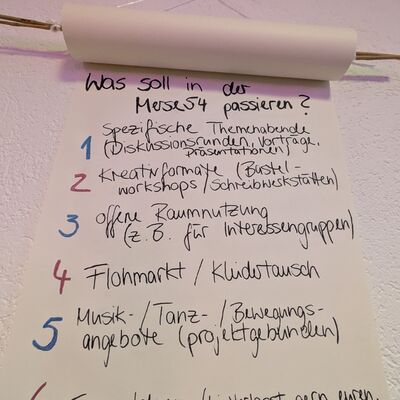 Was soll in der
Merse54 passieren?
1 Spezifische Themenabende
(Diskussionsrunden, Vorträge,
Präsentationen)
2 Kreativformate (Bastel-
workshops / Schreibwerkstätten)
3 offene Raumnutzung
(z.B. für Interessengruppen)
4 Flohmarkt / Kleidertausch
5 Musik- / Tanz- / Bewegungs-
angebote (projektgebunden)